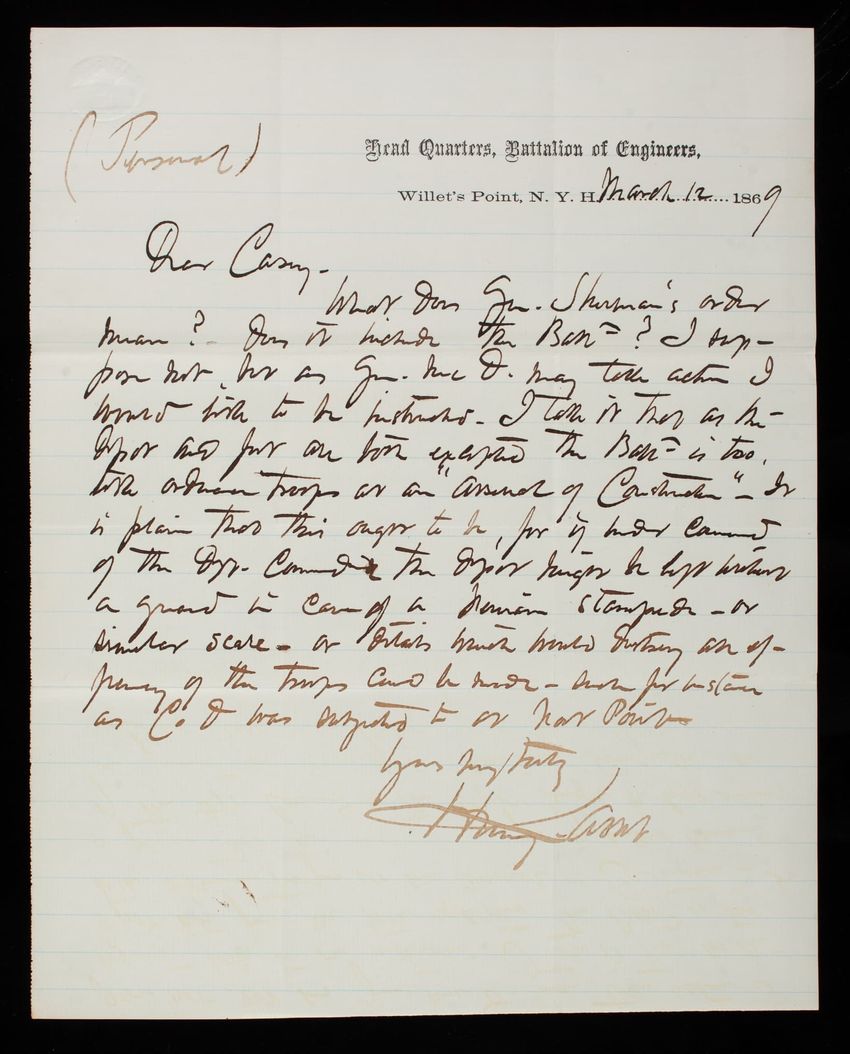 (Personal)
Head Quarters, Battalion of Engineers,
Willet's Point, N. Y. H. March 12 1869
Dear Casey -
What does Gen. Sherman's order
mean? - Does it include the Batt n? I sup-
pose not, but as Gen. Mc D. may take action I
would like to be instructed - I take it that as the
Depot and fort are both excepted the Batt n is too,
like ordnance troops at an "Arsenal of Construction" - It
is plain that this ought to be, for if under command
of the Dept. Commander the depot might be left without
a guard in case of a Fenian stampede - or
similar scare - or details which would destroy all ef-
ficiency of the troops could be made - such for instance
as Co. D was subjected to at West Point
Yours very truly
Henry L. Abbot